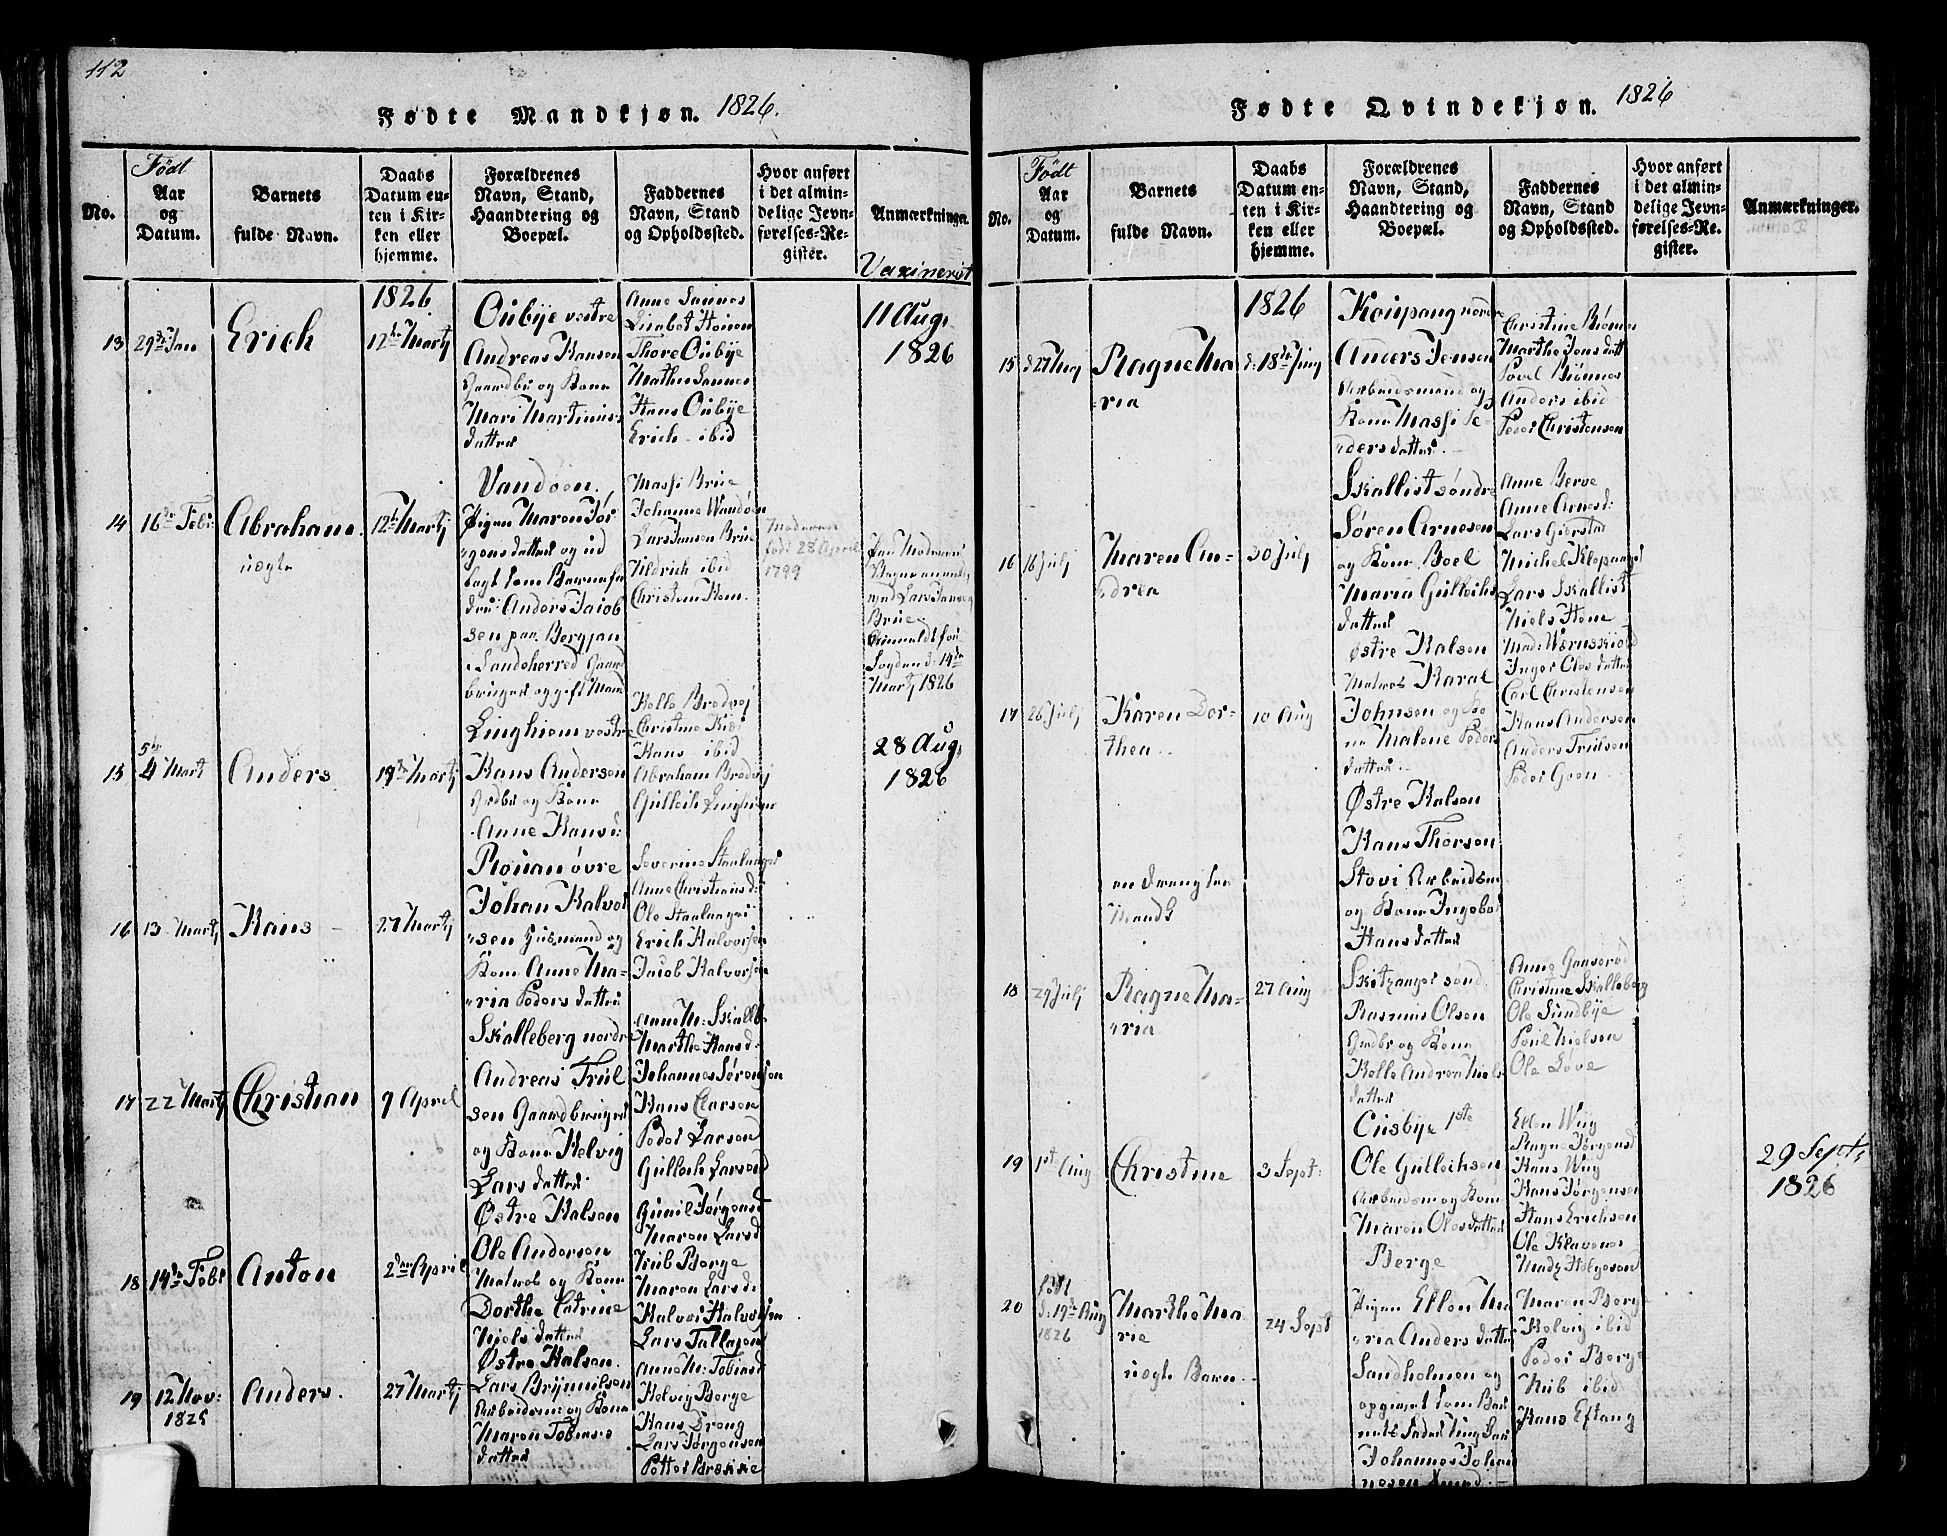 112
Fødte Mandkjøn. 1826.
No.
Født
Aar
og
Datum.
Barnets
fulde Navn.
Daabs
Datum en-
ten i Kir-
ken eller
hjemme.
Forældrenes
Navn, Stand,
Haandtering og
Boepæl.
Faddernes
Navn, Stand
og Opholdssted.
Hvor anført
i det almin-
delige Jevn-
førelses-Re-
gister.
Anmærkninger.
Vaxineret
13
29de Jan
Erich
1826
12te Martj
Oübÿe vestre
Andreas Hansen
Gaardbr og Kone
Mari Martinus-
datter
Anne Sannes
Thore Oübÿe
Mathis Sannes
Hans Oübÿe
Erich ibid
11 Aug.
1826
14
16de Febr:
Abraham.
uægte
12te Martj
Pigen Maren Jör-
gensdatter og ud
lagt som Barnefa
der: Anders Jacob
sen paa Bergan
Sandeherred Gaard
bruger og gift Mand
Massi Brüe
Johanne
Lars Jansen Brüe
Didrich ibid
Christen Hem.
Moderen
født 28 April
1799
Brüe
14de
Martj 1826
15
5te
4 Mart
Anders
19de Martj
Linghiem vestre
Hans Andersen
Grdbr og Kone
Anne Hansd:
Helle Bredvej
Christine
Hans ibid
Abraham Bredvej
Gülleich Linghiem
28 Aug.
1826
16
13 Martj
Hans
27 Martj
Johan Halvor
sen Huusmand og
Kone Anne Ma-
ria Peders datter
Severine
Anne Christiansd:
Ole
Erich Halvorsen
Jacob Halvorsen
17
22 Martj
Christian
9 April
Skalleberg nordre
Andreas Trul
sen Gaardbruger
og Kone Helvig
Lars datter
Anne M: Skalleb
Marthe Hansd:
Johannes Sörensen
Hans Clarsen
Peder Larsen
Gülloch Larsen
18
14de Febr
Anton
2den April
Østre Halsen
Ole Andersen
Matros og Kone
Dorthe Catrine
Niels datter
Günil Jørgensd
Maren Larsd
Nub Berge
Maren Larsd:
Halvor Halvorsen
Lars
19
12 Nov:
1825
Anders.
27 Martj
Østre Halsen.
Lars Brÿnnilsen
Arbeidsm og Kone
Maren Tobias-
datter
Anne M: Tobiasd
Helvig Berge
Hans
Lars Jørgensen
Petter
Fødte Qvindekjøn. 1826
No.
Født
Aar
og
Datum.
Barnets
fulde Navn.
Daabs
Datum en-
ten i Kir-
ken eller
hjemme.
Forældrenes
Navn, Stand,
Haandtering og
Boepæl.
Faddernes
Navn, Stand
og Opholdssted.
Hvor anført
i det almin-
delige Jevn-
førelses-Re-
gister.
Anmærkninger.
15
d 27 Maj
Ragne Ma
ria
1826
d: 18de Junj
Koupang nordre
Anders Jensen
Arbeidsmand og
Kone Massi Pe-
dersdatter
Christine Biønnes
Marthe Jensdatt
Povel Biønnes
Anders ibid
Peder Christensen
16
16 Julj
Maren An-
drea
30 Julj
Skallist søndre
Søren Arnesen
og Kone Boel
Maria Gülleichs
datter
Anne Berve
Anne Arnesd:
Lars Gierstad
Michel Klepanger
Lars Skallist
Niels Stene
17
26 Julj
Karen Dor-
thea
10 Aug
Østre Halsen
Matros Haral
Johnsen og Ko
ne Malene Peders
datter
Inger Olesdatter
Carl Christensen
Hans Andersen
Anders Trülsen
Peder Goen
Østre Halsen
Hans Thorsen
Stovi Arbeidsm
og Kone Ingebor
Hansdatter
18
29 Julj
Ragne Ma-
ria
27 Aug
Skitzanger sønd
Rasmus Olsen
Grdbr og Kone
Helle Andrea Niels
datter
Anne
Christine Skalleberg
Ole Sundbÿe
Poul Nielsen
Ole Løve
19
1ste Aug
Christine
3 Sept:
Ousbÿe 1ste
Ole Gülleichsen
Arbeidsm og Kone
Maren Olesdatter
Ellen Wÿg
Ragne Jørgensd
Hans Wÿg
Hans Jørgensen
Hans Erichsen
Ole Klavenes
29 Sept.
1826
20
født
d: 19de Aug
1826
Marthe Ma
rie
uægte Barn
24 Sept
Berge
Pigen Ellen Ma
ria Andersdatter
Sandholmen og
opgivet som Bar
nets Fader Ung Karl
Johannes Johan
nesen
Maren Berg
Helvig ibid
Peder Berge
Nub ibid
Hans Eftang